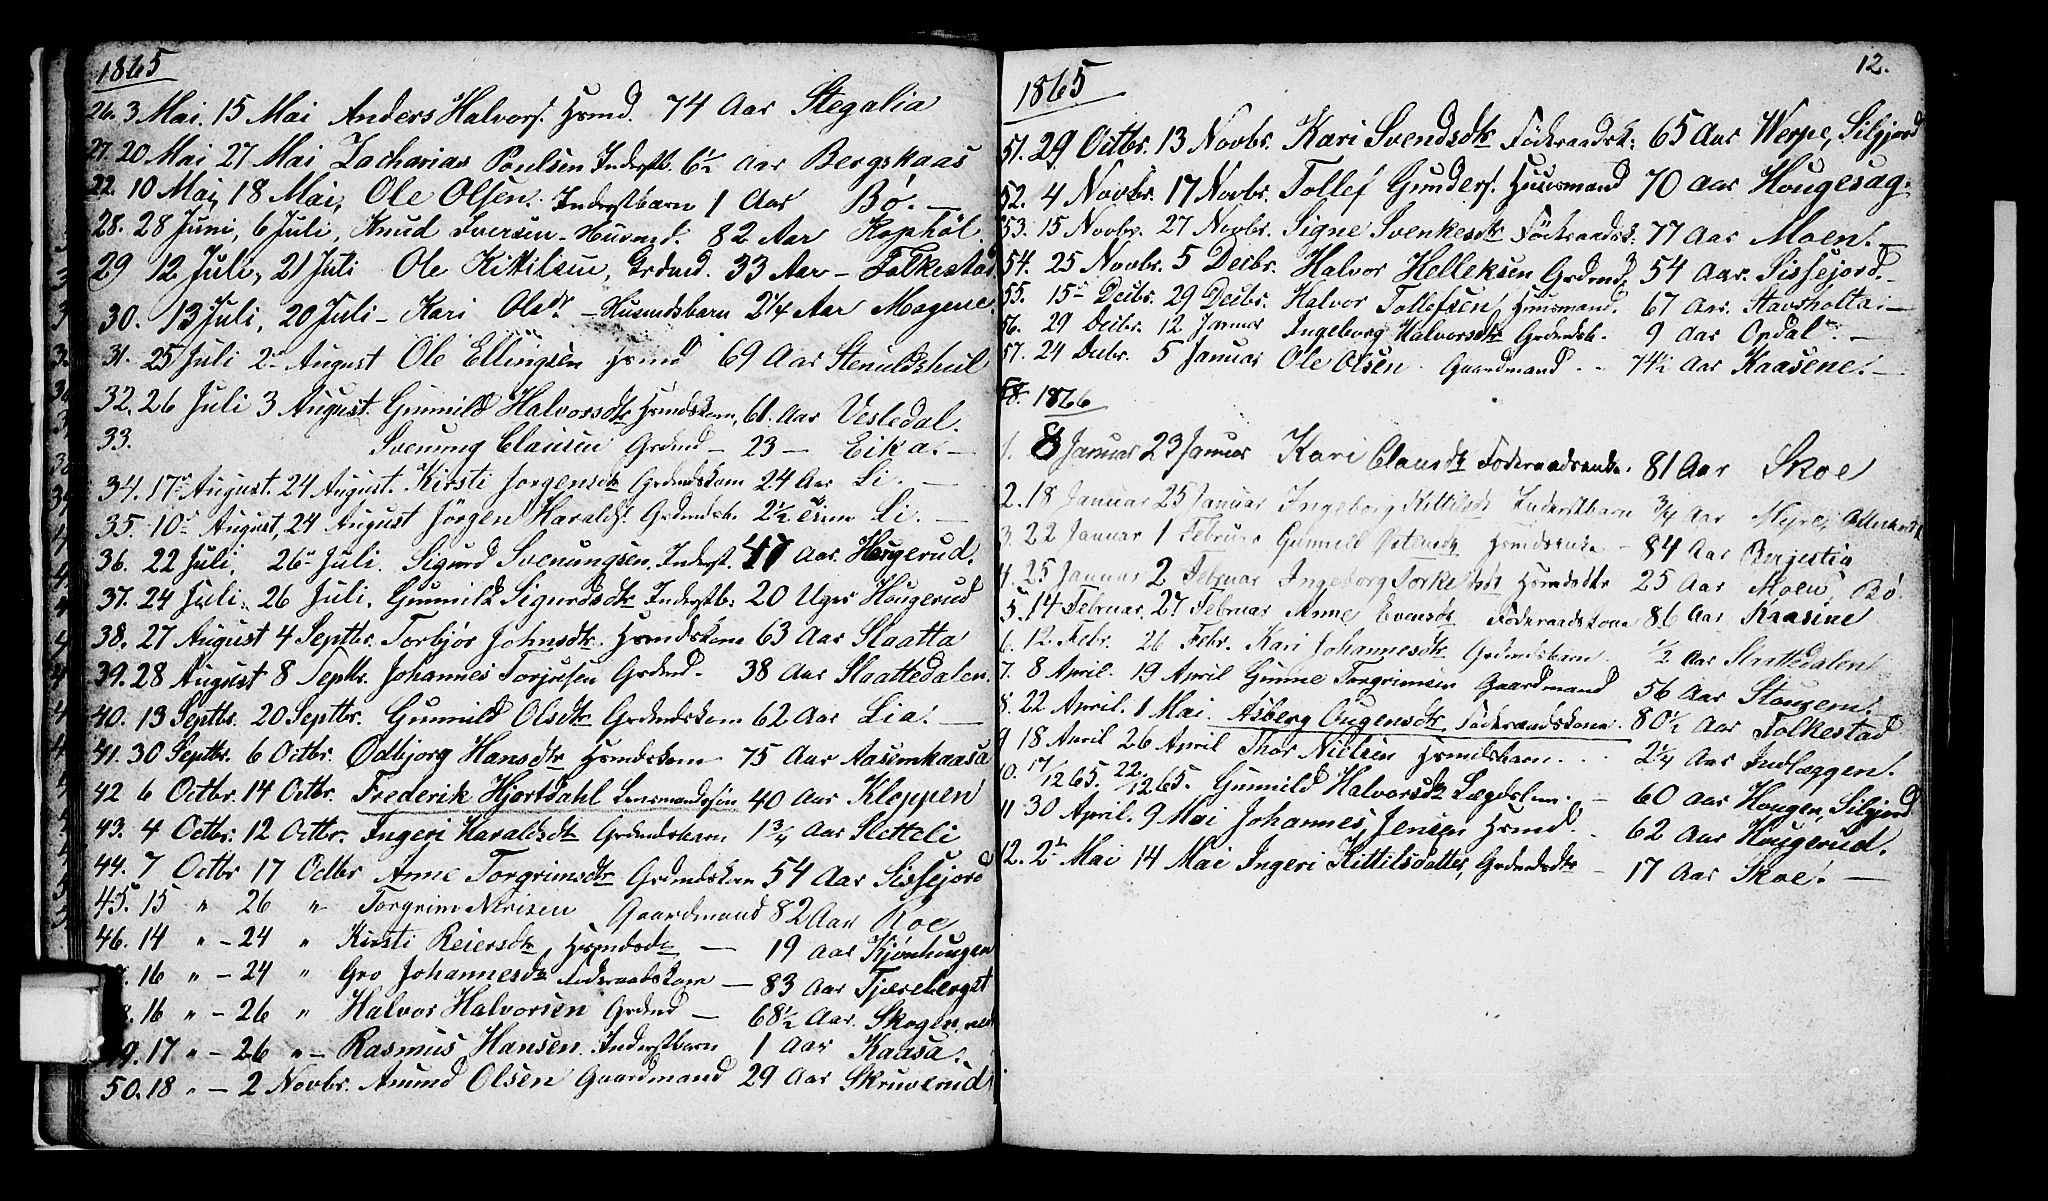 1865
26. 3 Mai. 15 Mai Anders Halvors. Hsmd. 74 Aar Stegalia
27. 20 Mai 27 Mai Zacharias Poulsen Inderstb. 6½ Aar Bergskaas
22. 10 Mai, 18 Mai, Ole Olsen. Inderstbarn 1 Aar Bø. —
28. 28 Juni, 6 Juli, Knud Iversen - Husmd. 82 Aar Haphöl.
29 12 Juli, 21 Juli Ole Kittilsen, Grdmd. 33 Aar - Folkestad
30. 13 Juli, 20 Juli - Kari Olsdr - Husmdsbarn 2¼ Aar Mogene.
31. 25 Juli 2den August Ole Ellingsen Hsmd 69 Aar Stenuldshul
32. 26 Juli 3 August. Gunnild Halvorsdtr Hsmdskone, 61. Aar Vesledal.
33. Svenung Clausen Grdmd - 23 - Eika. -
34. 17de August. 24 August. Kirsti Jorgensdtr Grdmdskone 24 Aar Li. —
35. 10de August, 24 August Jörgen Haralds. Grdmdsb. 2½ Li. —
36. 22 Juli. 26de Juli. Sigurd Svenungsen. Inderst. 47 Aar Hougerud.
37. 24 Juli. 26 Juli. Gunnild Sigurdsdtr Inderstb: 20 Uger Hougerud
38. 27 August 4 Septbr. Torbjör Johnsdtr. Hsmdskone 63 Aar Slaatta
39. 28 August 8 Septbr. Johannes Torjusen Grdmd. 38 Aar Slaattedalen.
40. 13 Septbr. 20 Septbr. Gunnild Olsdtr Grdmdskone 62 Aar Lia. —
41. 30 Septbr. 6 Octbr. Ødbjorg Hansdtr Hsmdskone 75 Aar Aasemkaasa
42 6 Octbr. 14 Octbr. Frederik Hjortdahl Lensmandssön 40 Aar Kleppen
43. 4 Octbr. 12 Octbr. Ingeri Haraldsdtr Grdmdsbarn 1¾ Aar Sletteli
44. 7 Octbr 17 Octbr Anne Torgrimsdtr Grdmdskone 54 Aar Sissejord
45. 15 " 26 " Torgrim Nirisen Gaardmand 82 Aar Roe
46. 14 " - 24 " Kirsti Reiersdtr Hsmdsdtr — 19 Aar Kjønhougen
16 " - 24 " Gro Johannesdtr Föderaadskone — 83 Aar Tjæreberget
16 " - 26 " Halvor Halvorsen Grdmd — 68½ Aar. Skogen
49. 17 " - 26 " - Rasmus Hansen Inderstbarn 1 Aar Kaasa.
50. 18 " - 2 Novbr. Amund Olsen Gaardmand 29 Aar Skruverud
12.
1865
51. 29 Octbr. 13 Novbr. Kari Svendsdtr Föderaadsk: 65 Aar Werpe, Siljord
52. 4 Novbr. 17 Novbr. Tollef Gunders. Huusmand 70 Aar Hougesag.
53. 15 Novbr. 27 Novbr. Signe Svenkesdtr Föderaadsk: 77 Aar Moen. —
54. 25 Novbr. 5 Decbr. Halvor Helleksen Grdmd, 54 Aar. Sissejord. -
55. 15de Decbr. 29 Decbr. Halvor Tollefsen, Huusmand. 67 Aar. Stavsholta. -
56. 29 Decbr. 12 Januar Ingeborg Halvorsdtr Grdmdsb. 9 Aar Opdal. -
57. 24 Decbr. 5 Januar Ole Olsen Gaardmand - - 74½ Aar Kaasene. —
58. 1866
1. 8 Januar 23 Januar Kari Clausdtr Föderaadsenke. 81 Aar Skoe
2. 18 Januar 25 Januar Ingeborg Kittilsdr Inderstbarn ¾ Aar Myre,
3. 22 Januar 1 Februar Gunnild Ostensdtr Hsmdsenke - 84 Aar Berjestia
4. 25 Januar 2 Februar Ingeborg Torkelsdtr Hsmdsdtr 25 Aar Moen, Bø.
5. 14 Februar. 27 Februar Anne Evensdtr Föderaadskone 86 Aar Kaasine
6. 12 Febr. 26 Febr. Kari Johannesdtr Grdmdsbarn ½ Aar Slattedalen
7. 8 April. 19 April Gunne Torgrimsen Gaardmand 56 Aar Stougem.
8. 22 April. 1 Mai. Asberg Ougensdtr Föderaadskone. 80½ Aar Folkestad
9 18 April 26 April Thor Nielsen Hsmdsbarn. . . 2¼ Aar Indlæggen.
10. 17/12 65. 22./12 65. Gunnild Halvorsdtr Lægdslem. - 60 Aar Hougen, Siljord
11 30 April. 9 Mai Johannes Jensen Hsmd. - 62 Aar Hougerud.
12. 2den Mai 14 Mai Ingeri Kittilsdatter, Grdmdsdtr - 17 Aar Skoe. —